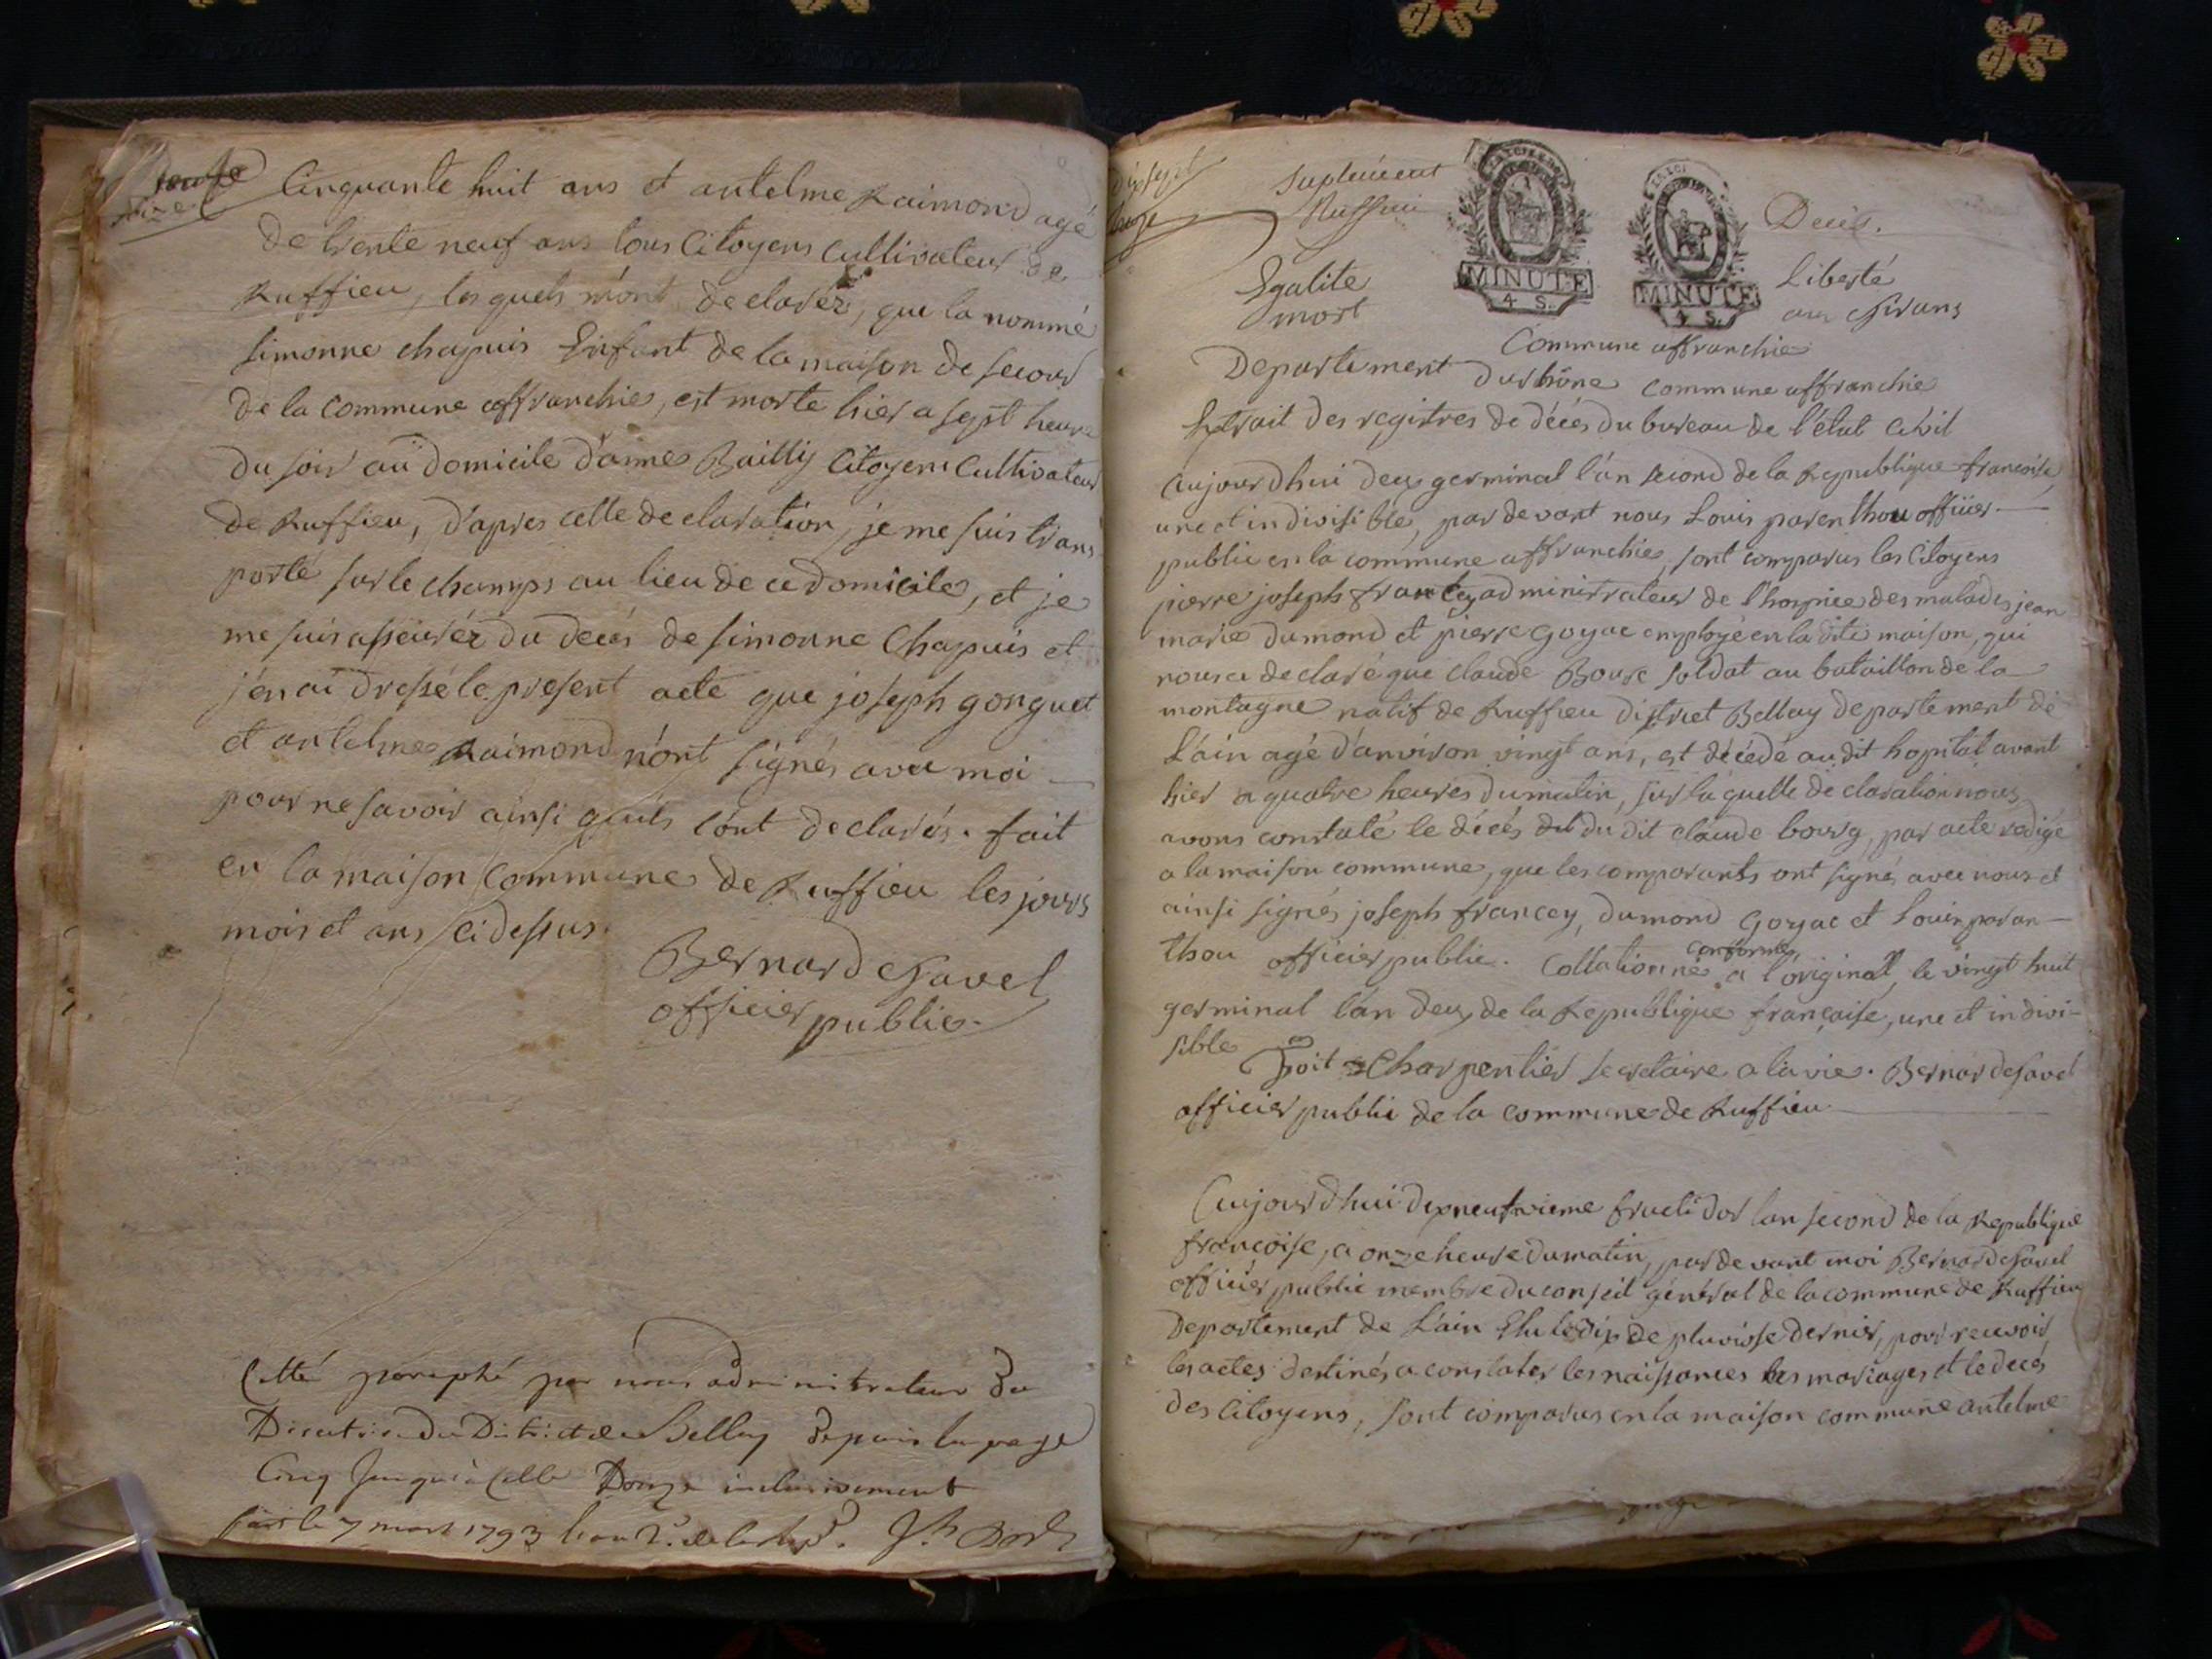 Cinquante huit ans et antelme Raimond agé
de trente neuf ans tous Citoyens cultivateur de
Ruffieu, les quels m'ont declarez, que la nommé
simonne chapuis Enfant de la maison de secour
de la commune affranchie, est morte hier a sept heure
du soir au domicile d'aime Bailly Citoyen Cultivateur
de Ruffieu, d'apres cette declaration, je me suis trans
porté sur le champs au lieu de ce domicile, et je
me suis asseuréz du deces de simonne Chapuis et
j'en ai dressé le present acte que joseph gonguet
et antelme Raimond n'ont signés avec moi
pour ne savoir ainsi quils l'ont declarés. fait
en la maison commune de Ruffieu les jours
mois et ans ci dessus.
Bernard chavel
officier public.
Cotté paraphé par nous administrateur du
Directoire du District de Belley depuis la page
Cinq jusqu'à celle Douze inclusivement
fait le 7 mars 1793 l'an 2e. de la rep.
Dixsept
suplement
Ruffieu
MINUTE
4 S.
MINUTE
4 S.
Decès.
Egalite
Liberté
mort
aux tirans
Commune affranchie
Departement du rhône commune affranchie
Extrait des registres de décés du bureau de l'état Civil
Aujourdhui deux germinal l'an second de la Republique francoise,
une et indivisible, par devant nous Louis parenthou officier
public en la commune affranchie, sont comparus les Citoyens
pierre joseph francey administrateur de l'hospice des malades jean
marie dumond et pierre Goyac employé en la dite maison, qui
nous a declaré que claude Bourc soldat au bataillon de la
montagne natif de Ruffieu district Belley departement de
L'ain agé d'anviron vingt ans, est décédé au dit hopital avant
hier a quatre heures du matin, sur la quelle declaration nous
avons constaté le décés du dit claude bourg, par acte redigé
a la maison commune, que les comparants ont signé avec nous et
ainsi signés joseph francey, dumond Goyac et Louis paran
thou officier public. Collationné conforme a l'original, le vingt huit
germinal l'an deux de la Republique française, une et indivi-
sible
Charpentier secretaire a la vie. Bernard chavel
officier public de la commune de Ruffieu
Aujourdhui dixneufvieme fructidor lan second de la Republique
francoise, a onze heure du matin, par devant moi Bernard chavel
officier public membre du conseil général de la commune de Ruffieu
Departement de L'ain Elu le dix de pluviosse dernier, pour recevoir
les actes destinés a constater les naissances les mariages et le decés
des Citoyens, sont comparus en la maison commune antelme